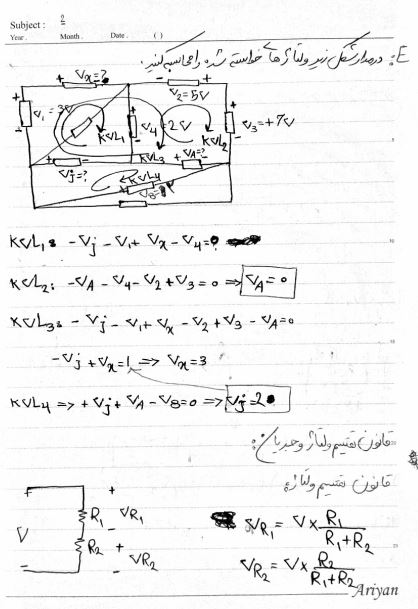 Subject : 2
Year . Month . Date . ( )
E: در مدار شکل زیر ولتاژ های خواسته شده را محاسبه کنید.
Vx = ?
V2 = 5V
V1 = 3V
KVL1
V4 = 2V
KVL2
V3 = +7V
KVL3
VA = ?
Vj = ?
KVL4
V8 =
KVL1: -Vj - V1 + Vx - V4 = 0
KVL2: -VA - V4 - V2 + V3 = 0 ⇒ VA = 0
KVL3: -Vj - V1 + Vx - V2 + V3 - VA = 0
-Vj + Vx = 1 ⇒ Vx = 3
KVL4 ⇒ +Vj + VA - V8 = 0 ⇒ Vj = 2
قانون تقسیم ولتاژ و جریان:
قانون تقسیم ولتاژ:
V
R1
+ VR1 -
R2
+ VR2 -
VR1 = V × R1 / (R1 + R2)
VR2 = V × R2 / (R1 + R2)
Ariyan